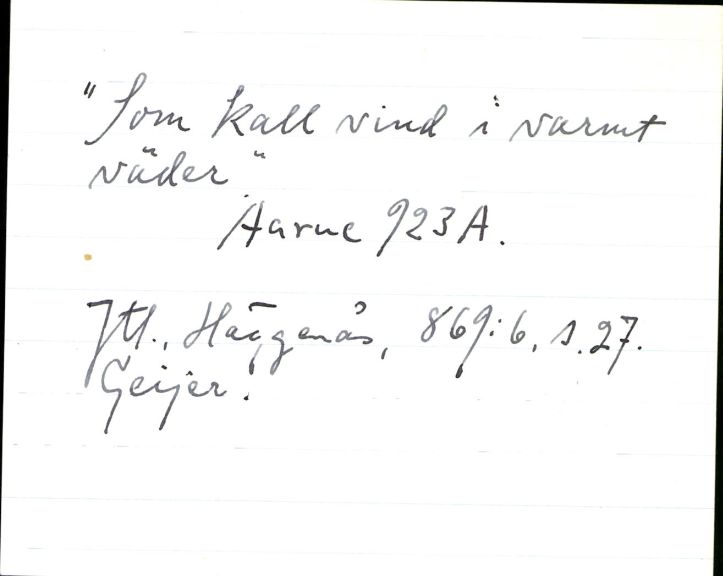 "Som kall vind i varmt
väder".
Aarne 923A.
Jtl., Häggenås, 869:6, s.27.
Geijer.